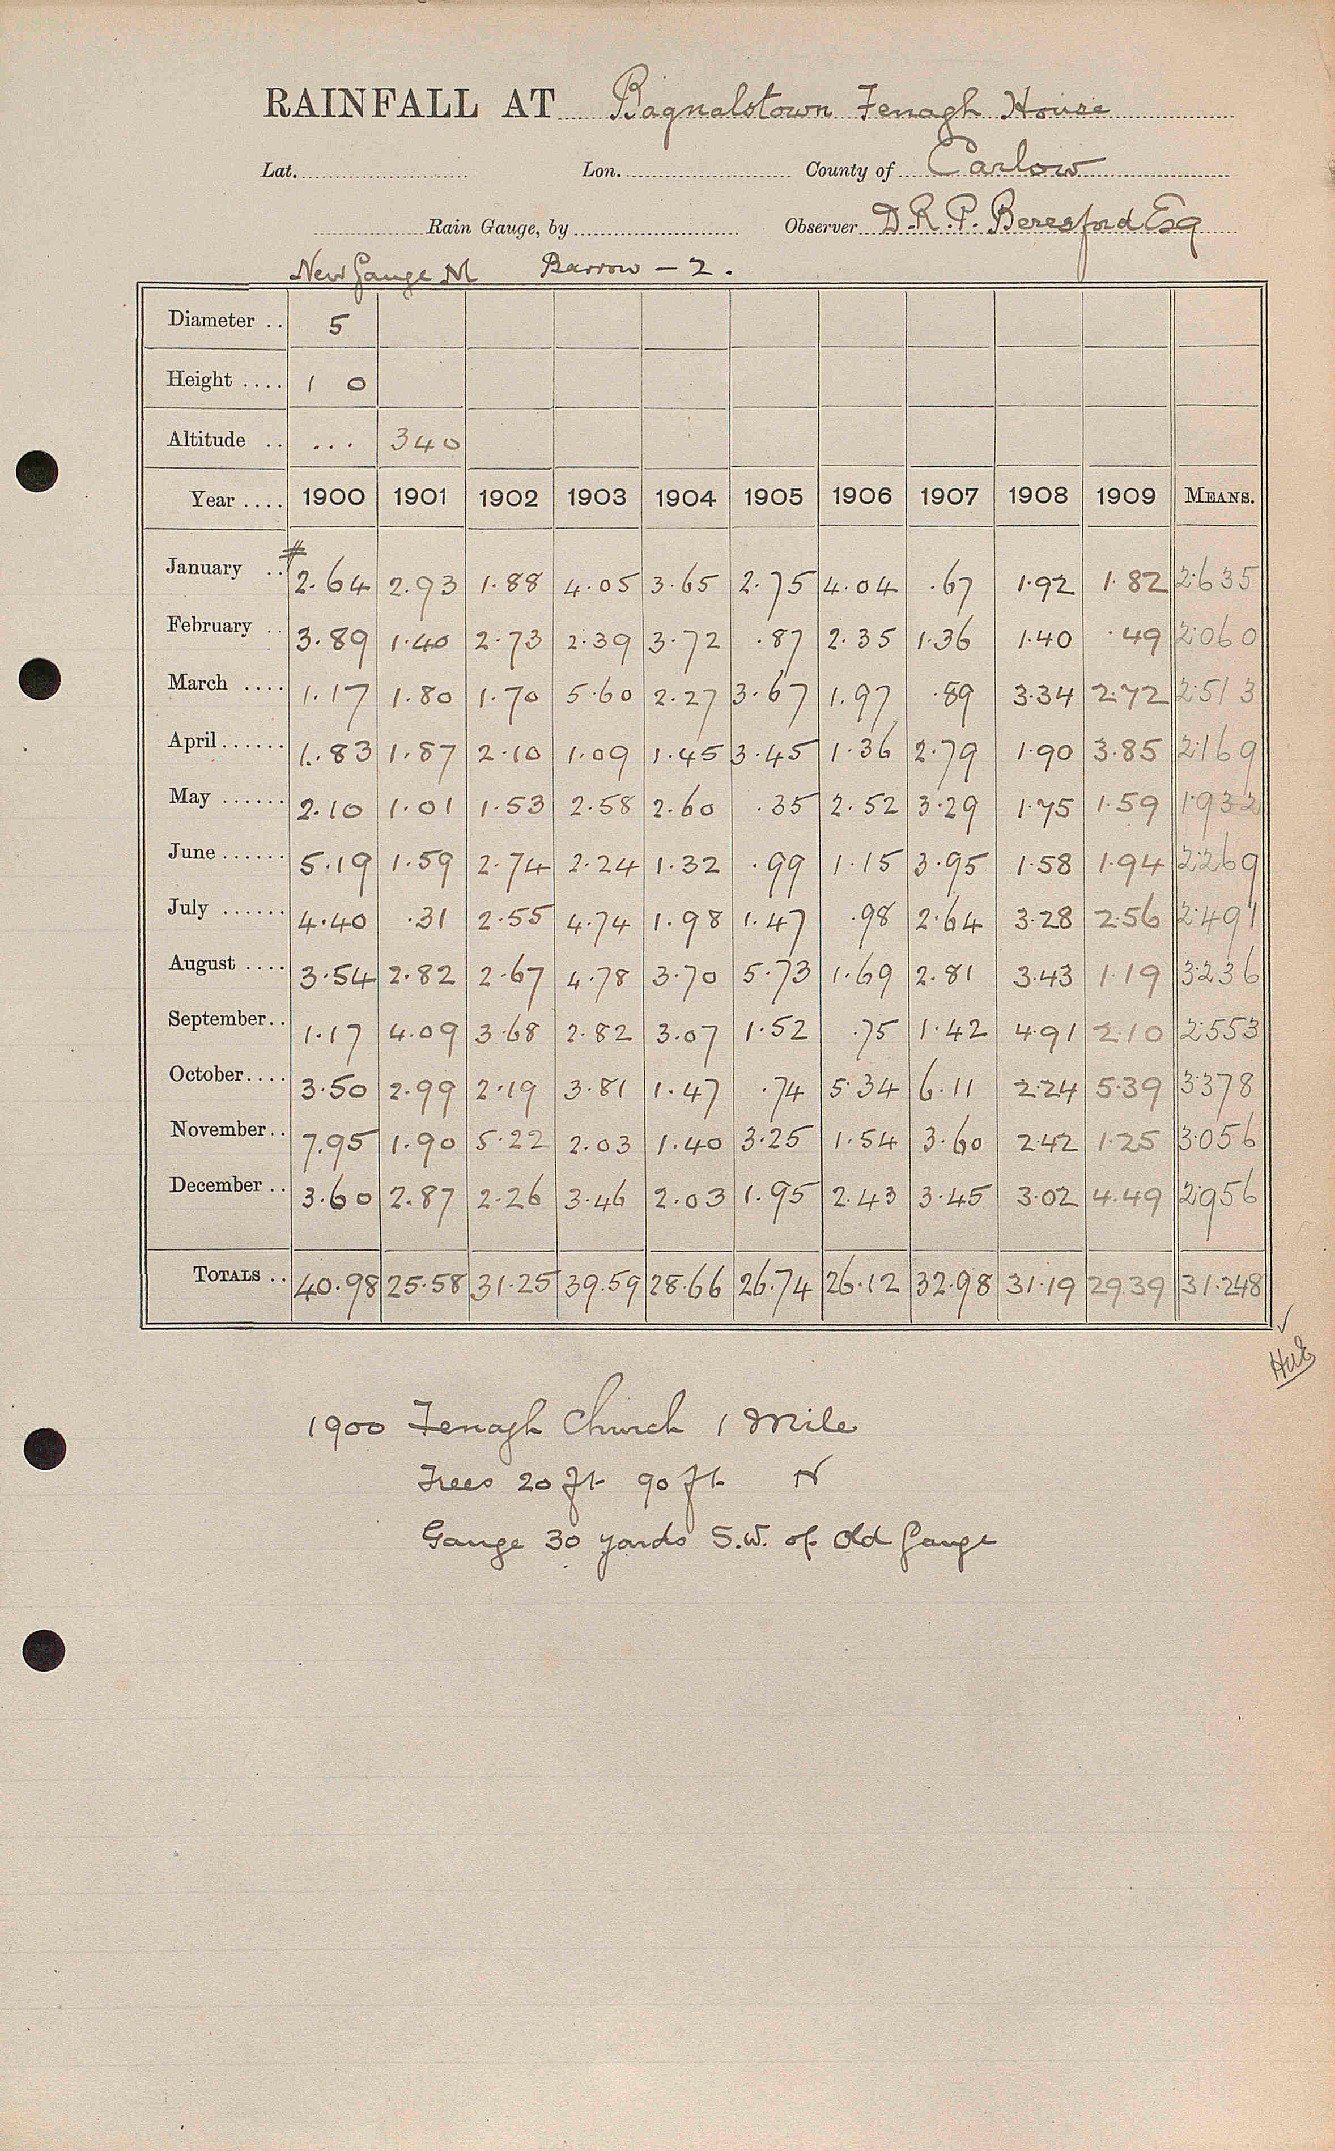 RAINFALL AT Bagnalstown Fenagh House
Lat. Lon. County of Carlow
Rain Gauge, by Observer D.R.P. Beresford Esq
New Gauge M Barrow - 2.
Diameter .. 5
Height .... 1 0
Altitude .. ... 340
Year .... 1900 1901 1902 1903 1904 1905 1906 1907 1908 1909 MEANS.
January .. # 2.64 2.93 1.88 4.05 3.65 2.75 4.04 .67 1.92 1.82 2.635
February .. 3.89 1.40 2.73 2.39 3.72 .87 2.35 1.36 1.40 .49 2.060
March .... 1.17 1.80 1.70 5.60 2.27 3.67 1.97 .89 3.34 2.72 2.513
April...... 1.83 1.87 2.10 1.09 1.45 3.45 1.36 2.79 1.90 3.85 2.169
May ...... 2.10 1.01 1.53 2.58 2.60 .35 2.52 3.29 1.75 1.59 1.932
June...... 5.19 1.59 2.74 2.24 1.32 .99 1.15 3.95 1.58 1.94 2.269
July ...... 4.40 .31 2.55 4.74 1.98 1.47 .98 2.64 3.28 2.56 2.491
August .... 3.54 2.82 2.67 4.78 3.70 5.73 1.69 2.81 3.43 1.19 3.236
September.. 1.17 4.09 3.68 2.82 3.07 1.52 .75 1.42 4.91 2.10 2.553
October.... 3.50 2.99 2.19 3.81 1.47 .74 5.34 6.11 2.24 5.39 3.378
November.. 7.95 1.90 5.22 2.03 1.40 3.25 1.54 3.60 2.42 1.25 3.056
December .. 3.60 2.87 2.26 3.46 2.03 1.95 2.43 3.45 3.02 4.49 2.956
TOTALS .. 40.98 25.58 31.25 39.59 28.66 26.74 26.12 32.98 31.19 29.39 31.248
1900 Fenagh Church 1 Mile
Trees 20 ft 90 ft N
Gauge 30 yards S.W. of Old Gauge